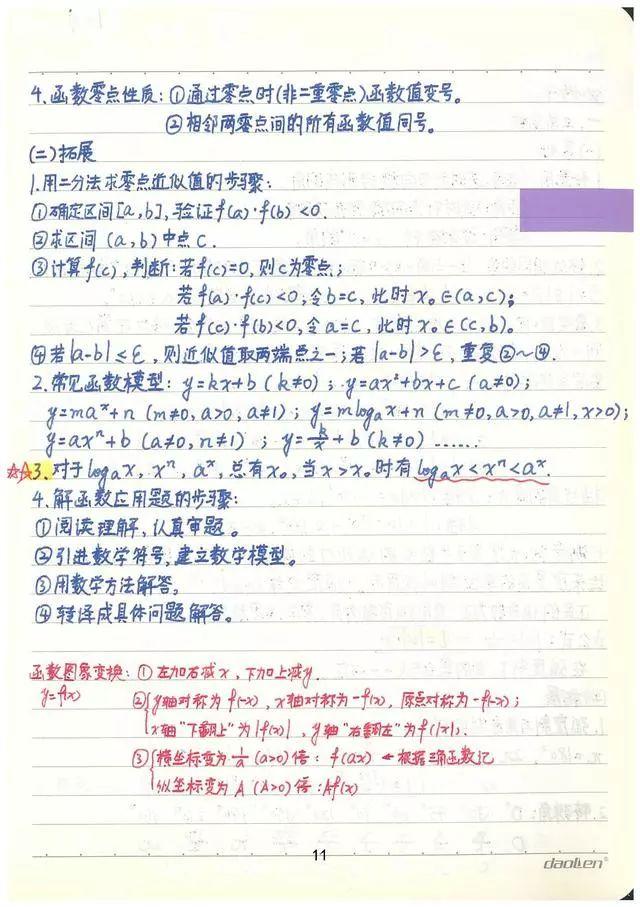 4.函数零点性质:①通过零点时(非二重零点)函数值变号。
②相邻两零点间的所有函数值同号。
(二)拓展
1.用二分法求零点近似值的步骤:
①确定区间[a,b],验证f(a)·f(b)<0.
②求区间(a,b)中点c.
③计算f(c),判断:若f(c)=0,则c为零点;
若f(a)·f(c)<0,令b=c,此时x₀∈(a,c);
若f(c)·f(b)<0,令a=c,此时x₀∈(c,b).
④若|a-b|≤ε,则近似值取两端点之一;若|a-b|>ε,重复②~④.
2.常见函数模型:y=kx+b(k≠0);y=ax²+bx+c(a≠0);
y=maˣ+n(m≠0,a>0,a≠1);y=mlogₐx+n(m≠0,a>0,a≠1,x>0);
y=axⁿ+b(a≠0,n≠1);y=k/x+b(k≠0)……
☆☆3.对于logₐx,xⁿ,aˣ,总有x₀,当x>x₀时有logₐx<xⁿ<aˣ.
4.解函数应用题的步骤:
①阅读理解,认真审题。
②引进数学符号,建立数学模型。
③用数学方法解答。
④转译成具体问题解答。
函数图象变换:①左加右减x,下加上减y.
y=f(x) ②y轴对称为f(-x),x轴对称为-f(x),原点对称为-f(-x);
x轴"下翻上"为|f(x)|,y轴"右翻左"为f(|x|).
③横坐标变为1/a(a>0)倍:f(ax)←根据三角函数记
纵坐标变为A(A>0)倍:Af(x)
11
daolen®